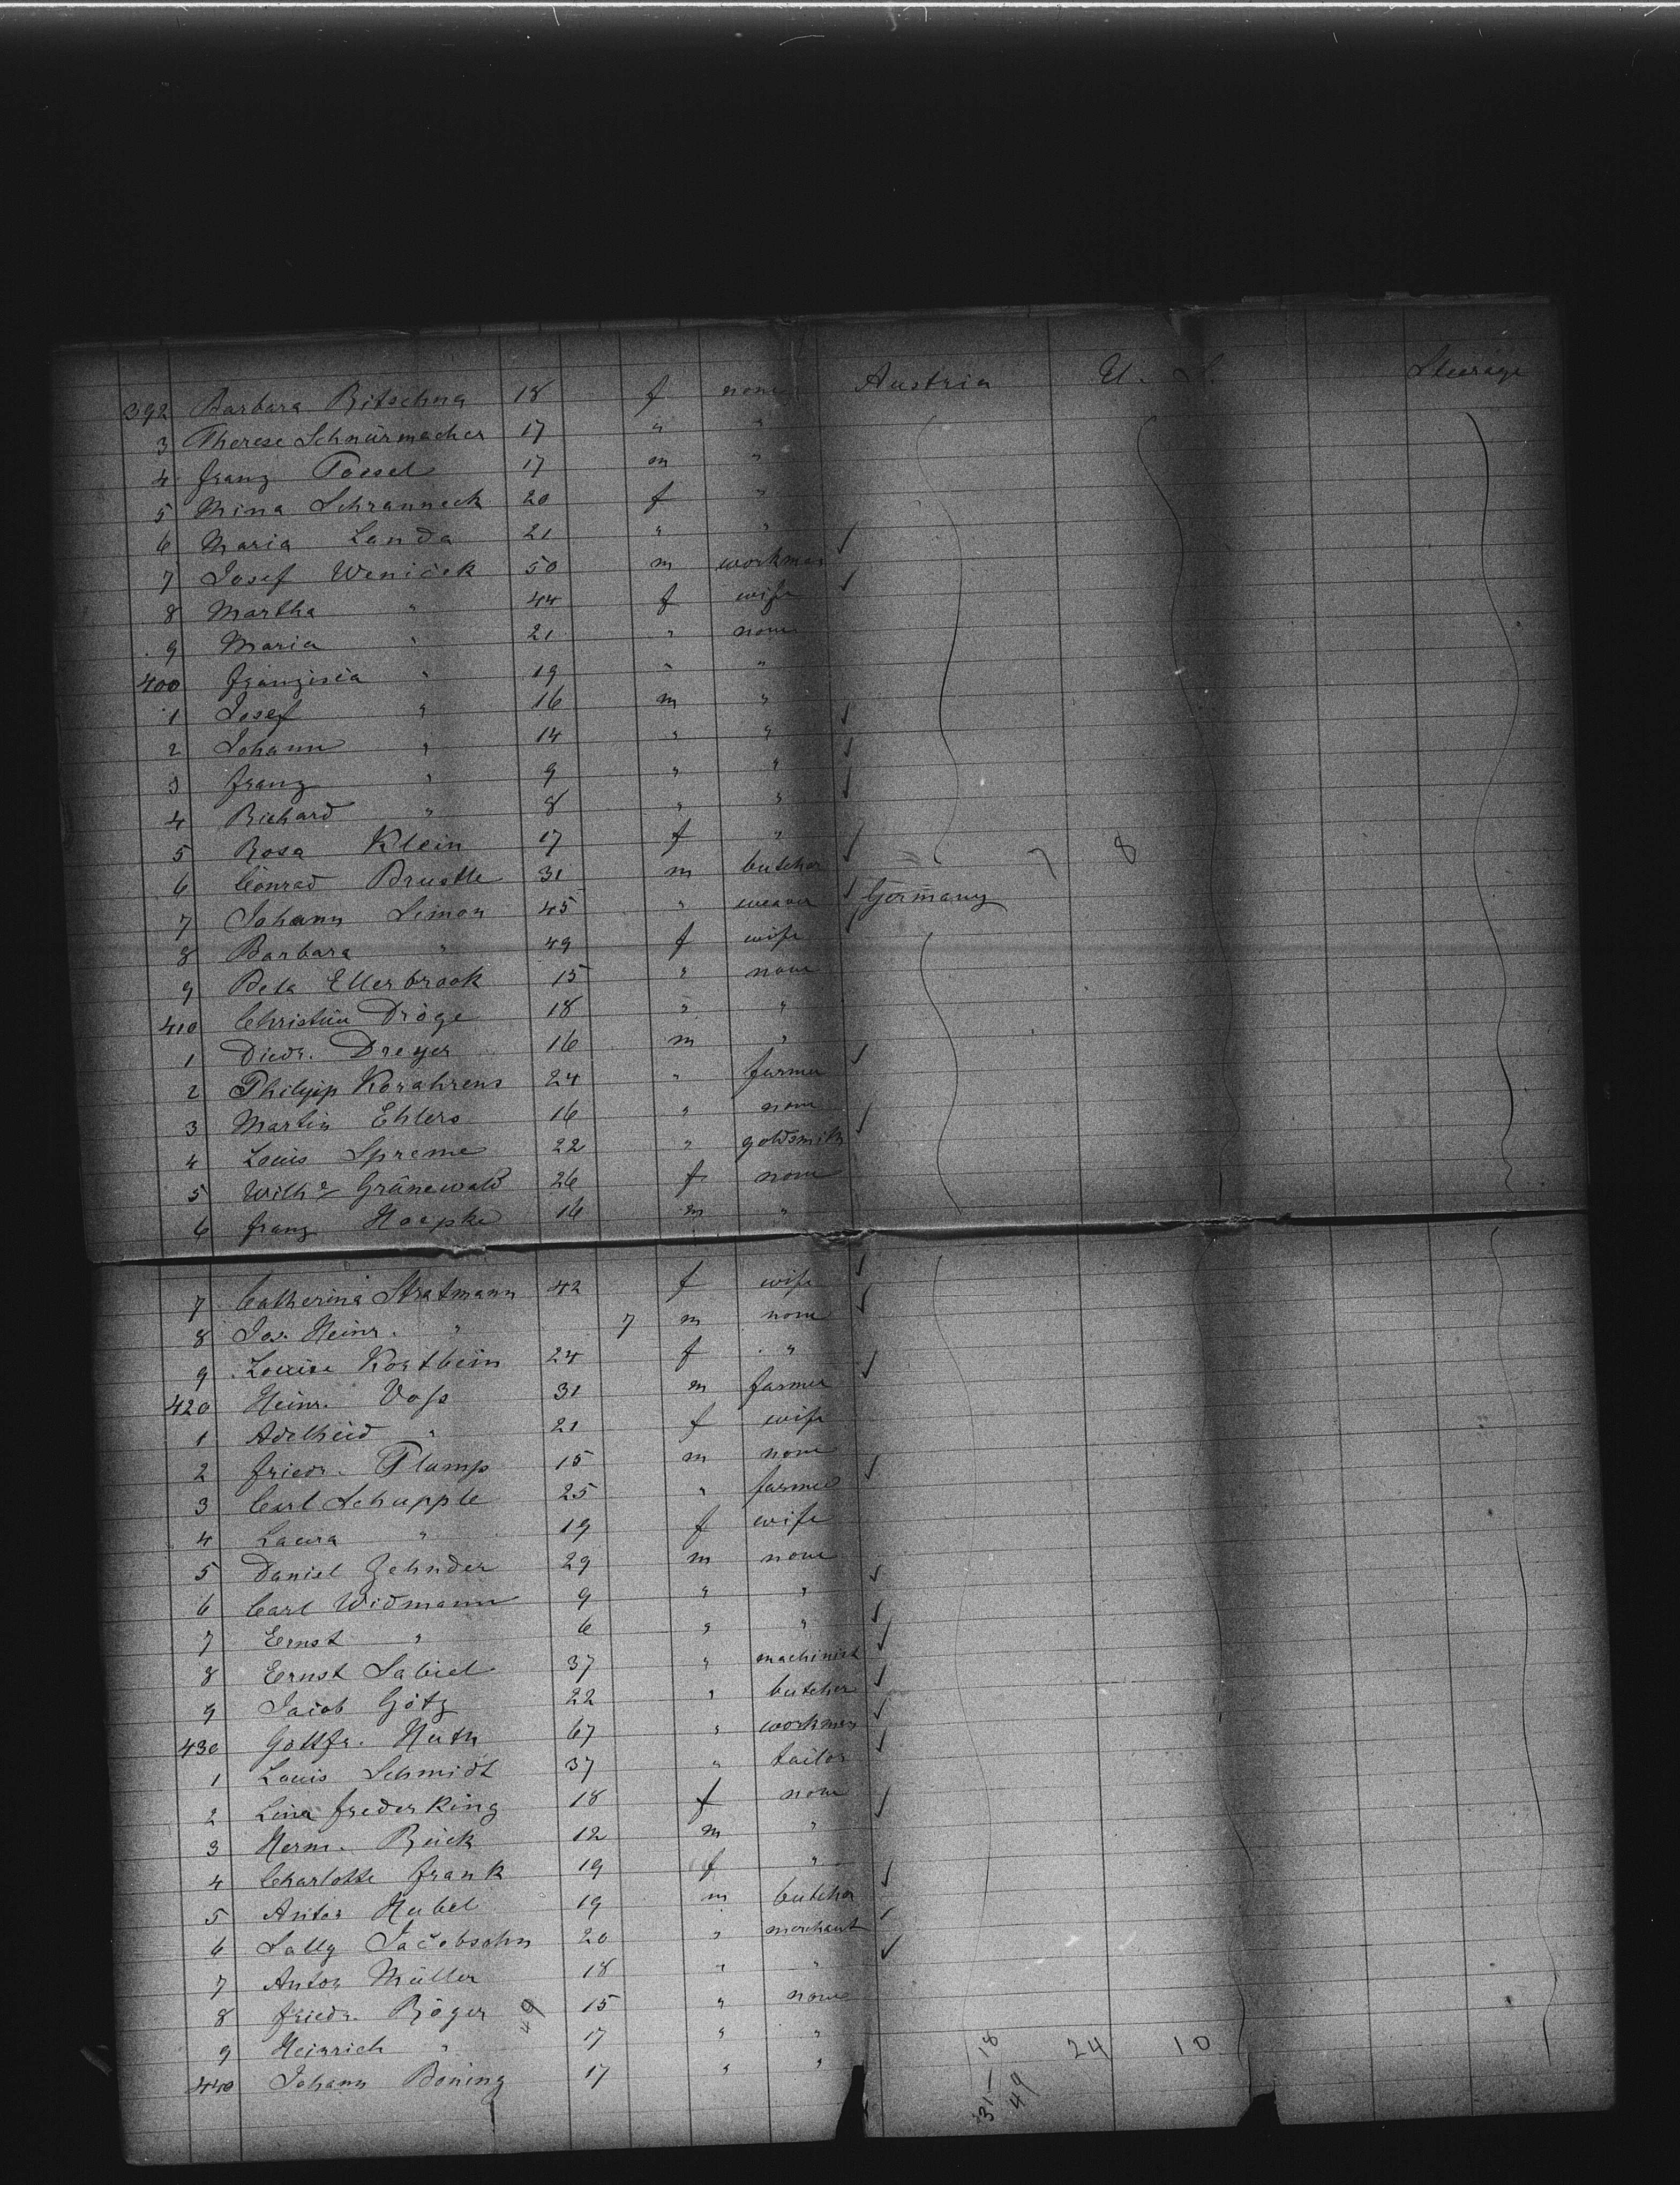 392 Barbara Bitschna 18 f none Austria U. S. Steerage
3 Therese Schnürmacher 17 " "
4 Franz Poesel 17 m "
5 Mina Schranneck 20 f "
6 Maria Landa 21 " "
7 Josef Wenicek 50 m workman
8 Martha " 44 f wife
9 Maria " 21 " none
400 Franzisca " 19 " "
1 Josef " 16 m "
2 Johann " 14 " "
3 Franz " 9 " "
4 Richard " 8 " "
5 Rosa Klein 17 f " 7 8
6 Conrad Brustle 31 m butcher
7 Johann Simon 45 " weaver Germany
8 Barbara " 49 f wife
9 Beta Ellerbrook 15 " none
410 Christine Dröge 18 " "
1 Diedr. Dreyer 16 m "
2 Philipp Korahrens 24 " farmer
3 Martin Ehlers 16 " none
4 Louis Spreme 22 " goldsmith
5 Wilhe Grünewald 26 f none
6 Franz Hoepke 16 m "
7 Catherina Stratmann 42 f wife
8 Jos. Heinr. " 7 m none
9 Louise Kortbein 24 f "
420 Heinr. Voss 31 m farmer
1 Adelheid " 21 f wife
2 Friedr. Plump 15 m none
3 Carl Schupple 25 " farmer
4 Laura " 19 f wife
5 Daniel Zehnder 29 m none
6 Carl Widmann 9 " "
7 Ernst " 6 " "
8 Ernst Sabiel 37 " machinist
9 Jacob Götz 22 " butcher
430 Gottfr. Huth 67 " workman
1 Louis Schmidt 37 " tailor
2 Line Frederking 18 f none
3 Herm. Rück 12 m "
4 Charlotte Frank 19 f "
5 Anton Hubel 19 m butcher
6 Sally Jacobsohn 20 " merchant
7 Anton Müller 18 " "
8 Friedr. Röger 49 15 " none
9 Heinrich " 17 " " 18 24 10
440 Johann Böning 17 " " 31 49